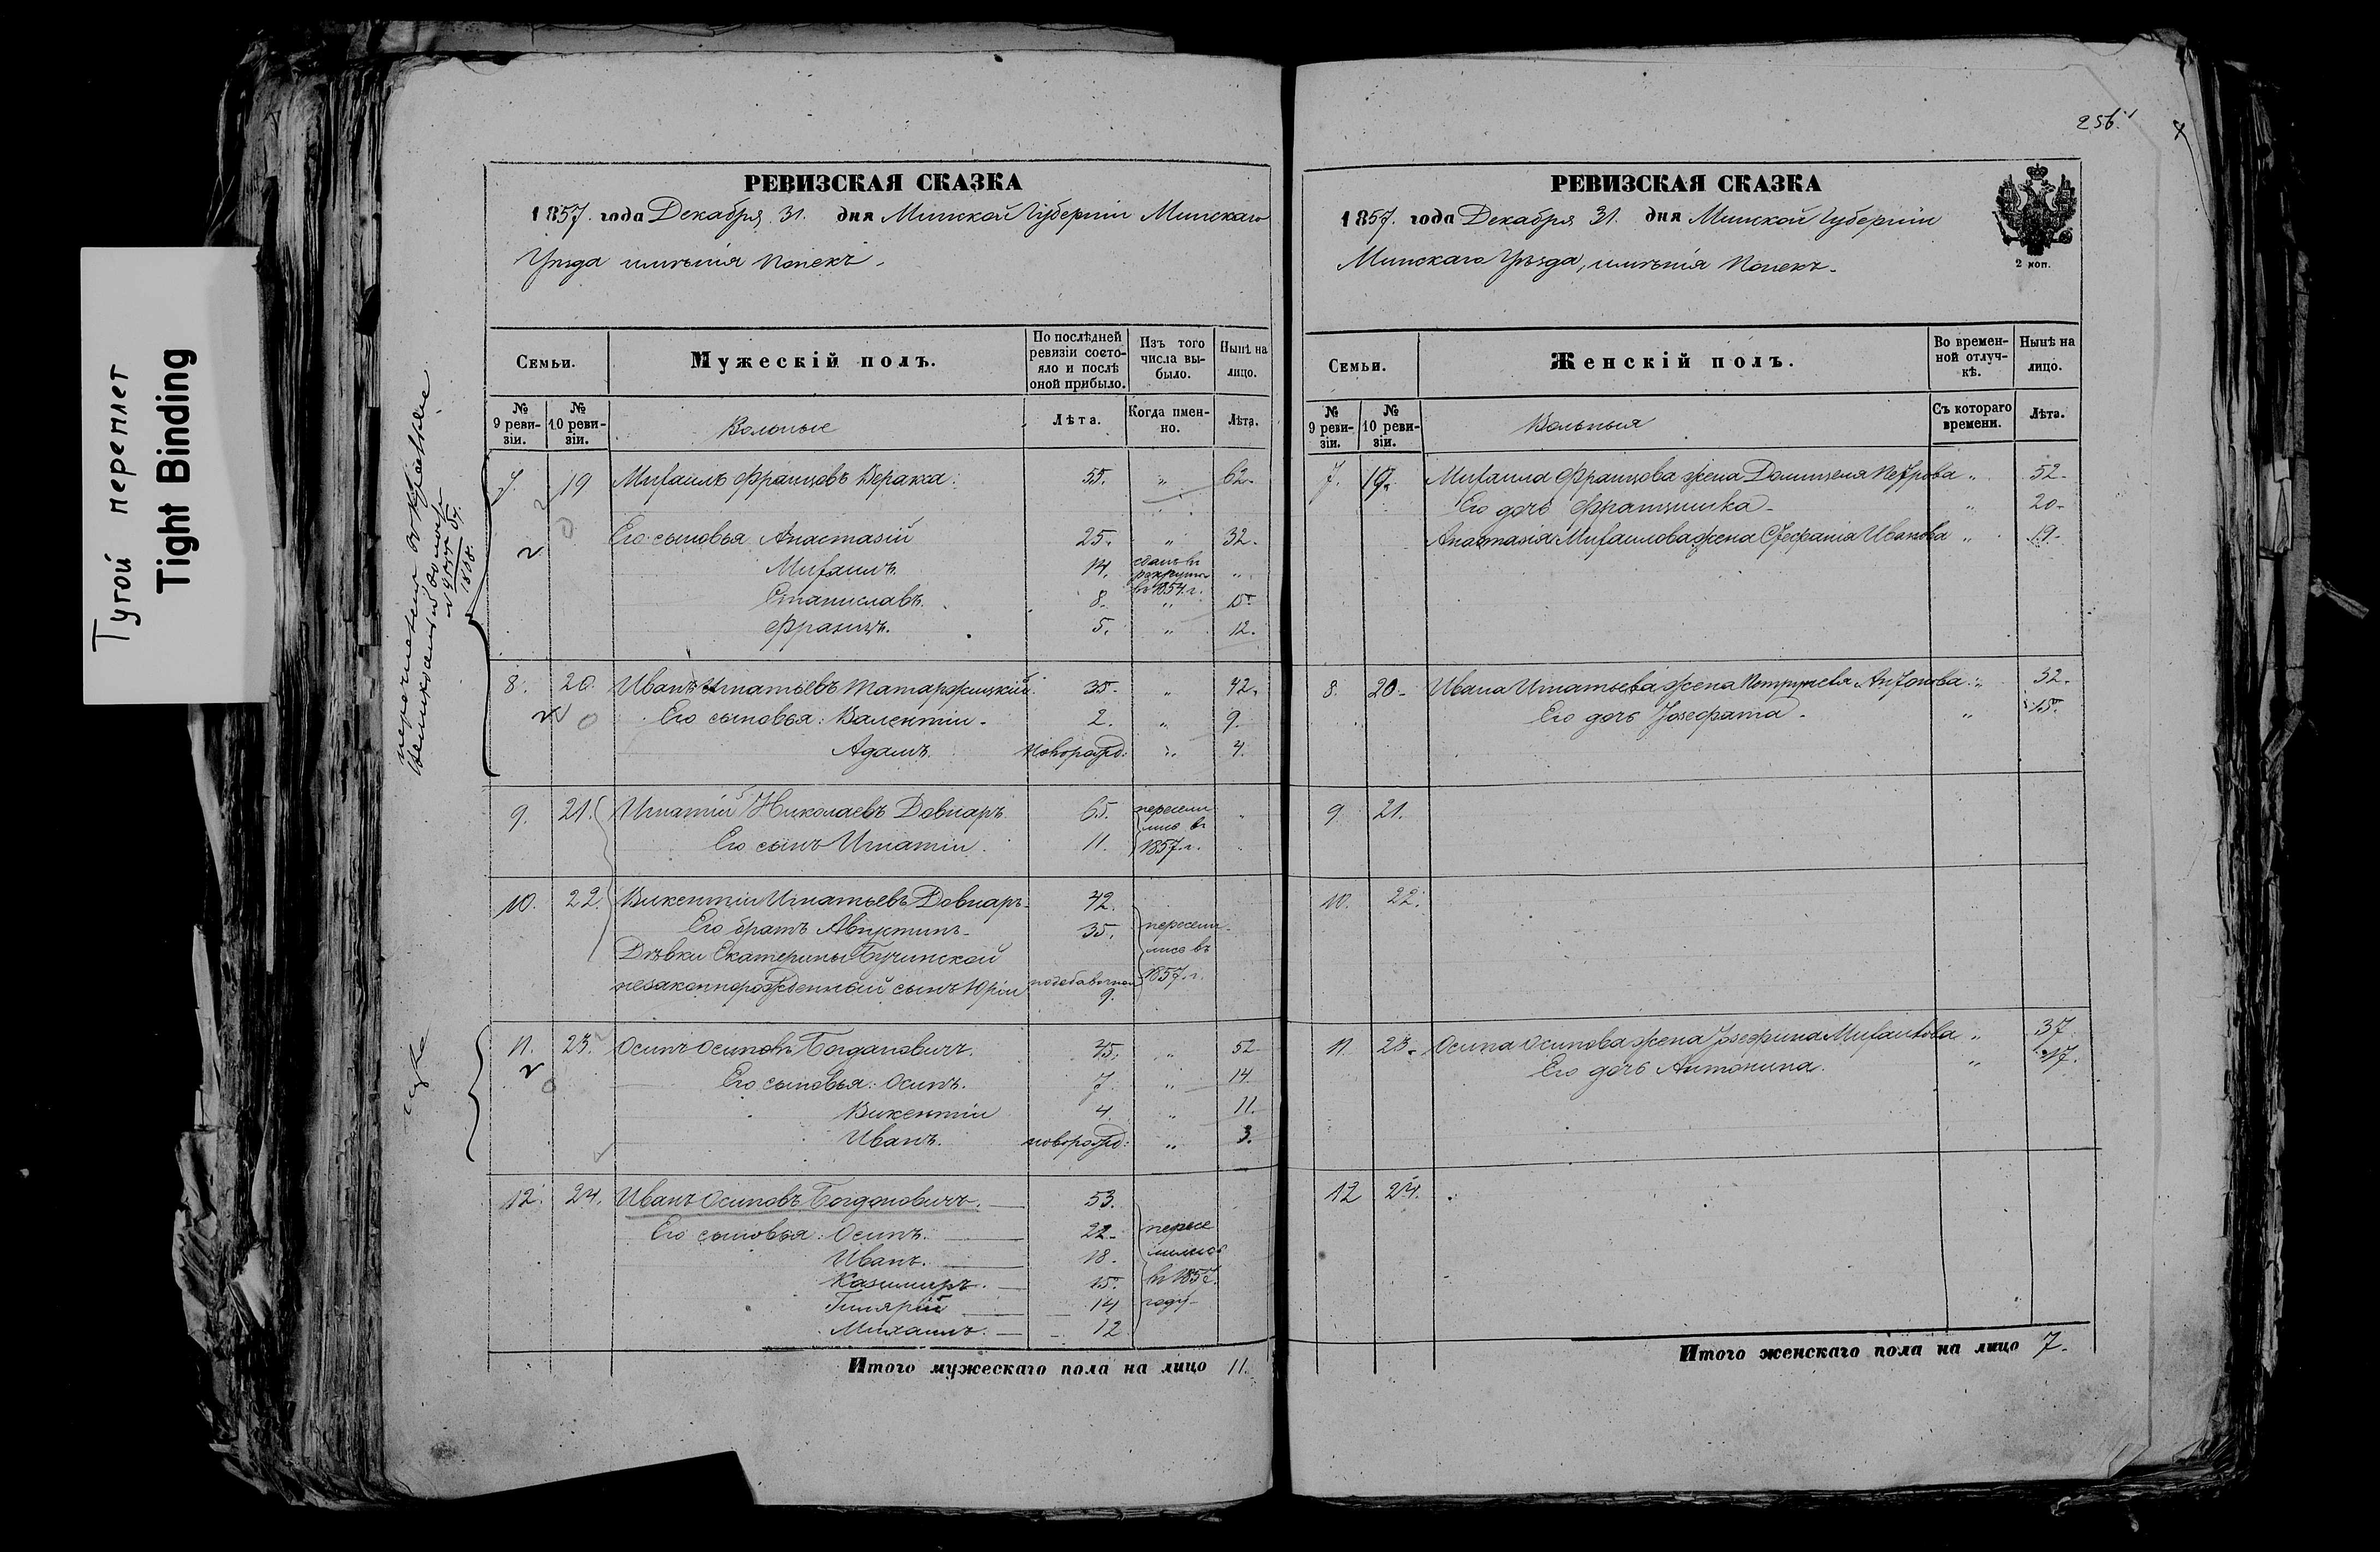 Тугой переплет
Tight Binding
256.
РЕВИЗСКАЯ СКАЗКА
1857. года Декабря 31. дня Минской Губерніи Минскаго
Уѣзда имѣнія
Семьи.
Мужескій полъ.
По послѣдней ревизіи состояло и послѣ оной прибыло.
Изъ того числа выбыло.
Нынѣ на лицо.
№ 9 ревизіи.
№ 10 ревизіи.
Вольные
Лѣта.
Когда именно.
Лѣта.
7. 19 Михаилъ Францовъ 55. " 62.
Его сыновья Анастасій 25. " 32.
Михаилъ 14. сданъ въ рекруты въ 1854 г. "
Станиславъ. 8. " 15.
Францъ. 5. " 12.
8. 20. Иванъ Игнатьевъ 35. " 42.
Его сыновья: Валентій. 2. " 9.
Адамъ. новорожд: " 4.
9. 21. Игнатій Николаевъ Довнаръ 65. переселились въ 1857. г. "
Его сынъ Игнатій. 11.
10. 22. Викентій Игнатьевъ Довнаръ. 42.
Его братъ Августинъ. 35. переселились въ 1857. г.
Дѣвки Екатерины Бучинской
незаконнорожденный сынъ Юрій 9.
11. 23. Осипъ Осиповъ Богдановичъ. 45. " 52
Его сыновья: Осипъ. 7 " 14
Викентій 4. " 11.
Иванъ. новорожд: " 3.
12. 24. Иванъ Осиповъ Богдановичъ. 53.
Его сыновья: Осипъ. 22. переселились въ 1852. году
Иванъ. 18.
Казимиръ. 15.
Гилярій 14
Михаилъ. 12
Итого мужескаго пола на лицо 11.
РЕВИЗСКАЯ СКАЗКА
1857. года Декабря 31. дня Минской Губерніи
Минскаго Уѣзда, имѣнія
2 коп.
Семьи.
Женскій полъ.
Во временной отлучкѣ.
Нынѣ на лицо.
№ 9 ревизіи.
№ 10 ревизіи.
Вольныя
Съ котораго времени.
Лѣта.
7. 19. Михаила Францова жена Домицеля Петрова " 52.
Его дочь Францишка. " 20.
Анастасія Михаилова жена Стефанія Иванова " 19.
8. 20. Ивана Игнатьева жена Петрунеля Антонова: " 32.
Его дочь Іозефата. " 15.
9 21.
10. 22.
11. 23. Осипа Осипова жена Іозефина Михайлова " 37
Его дочь Антонина. " 17.
12 24.
Итого женскаго пола на лицо 7.